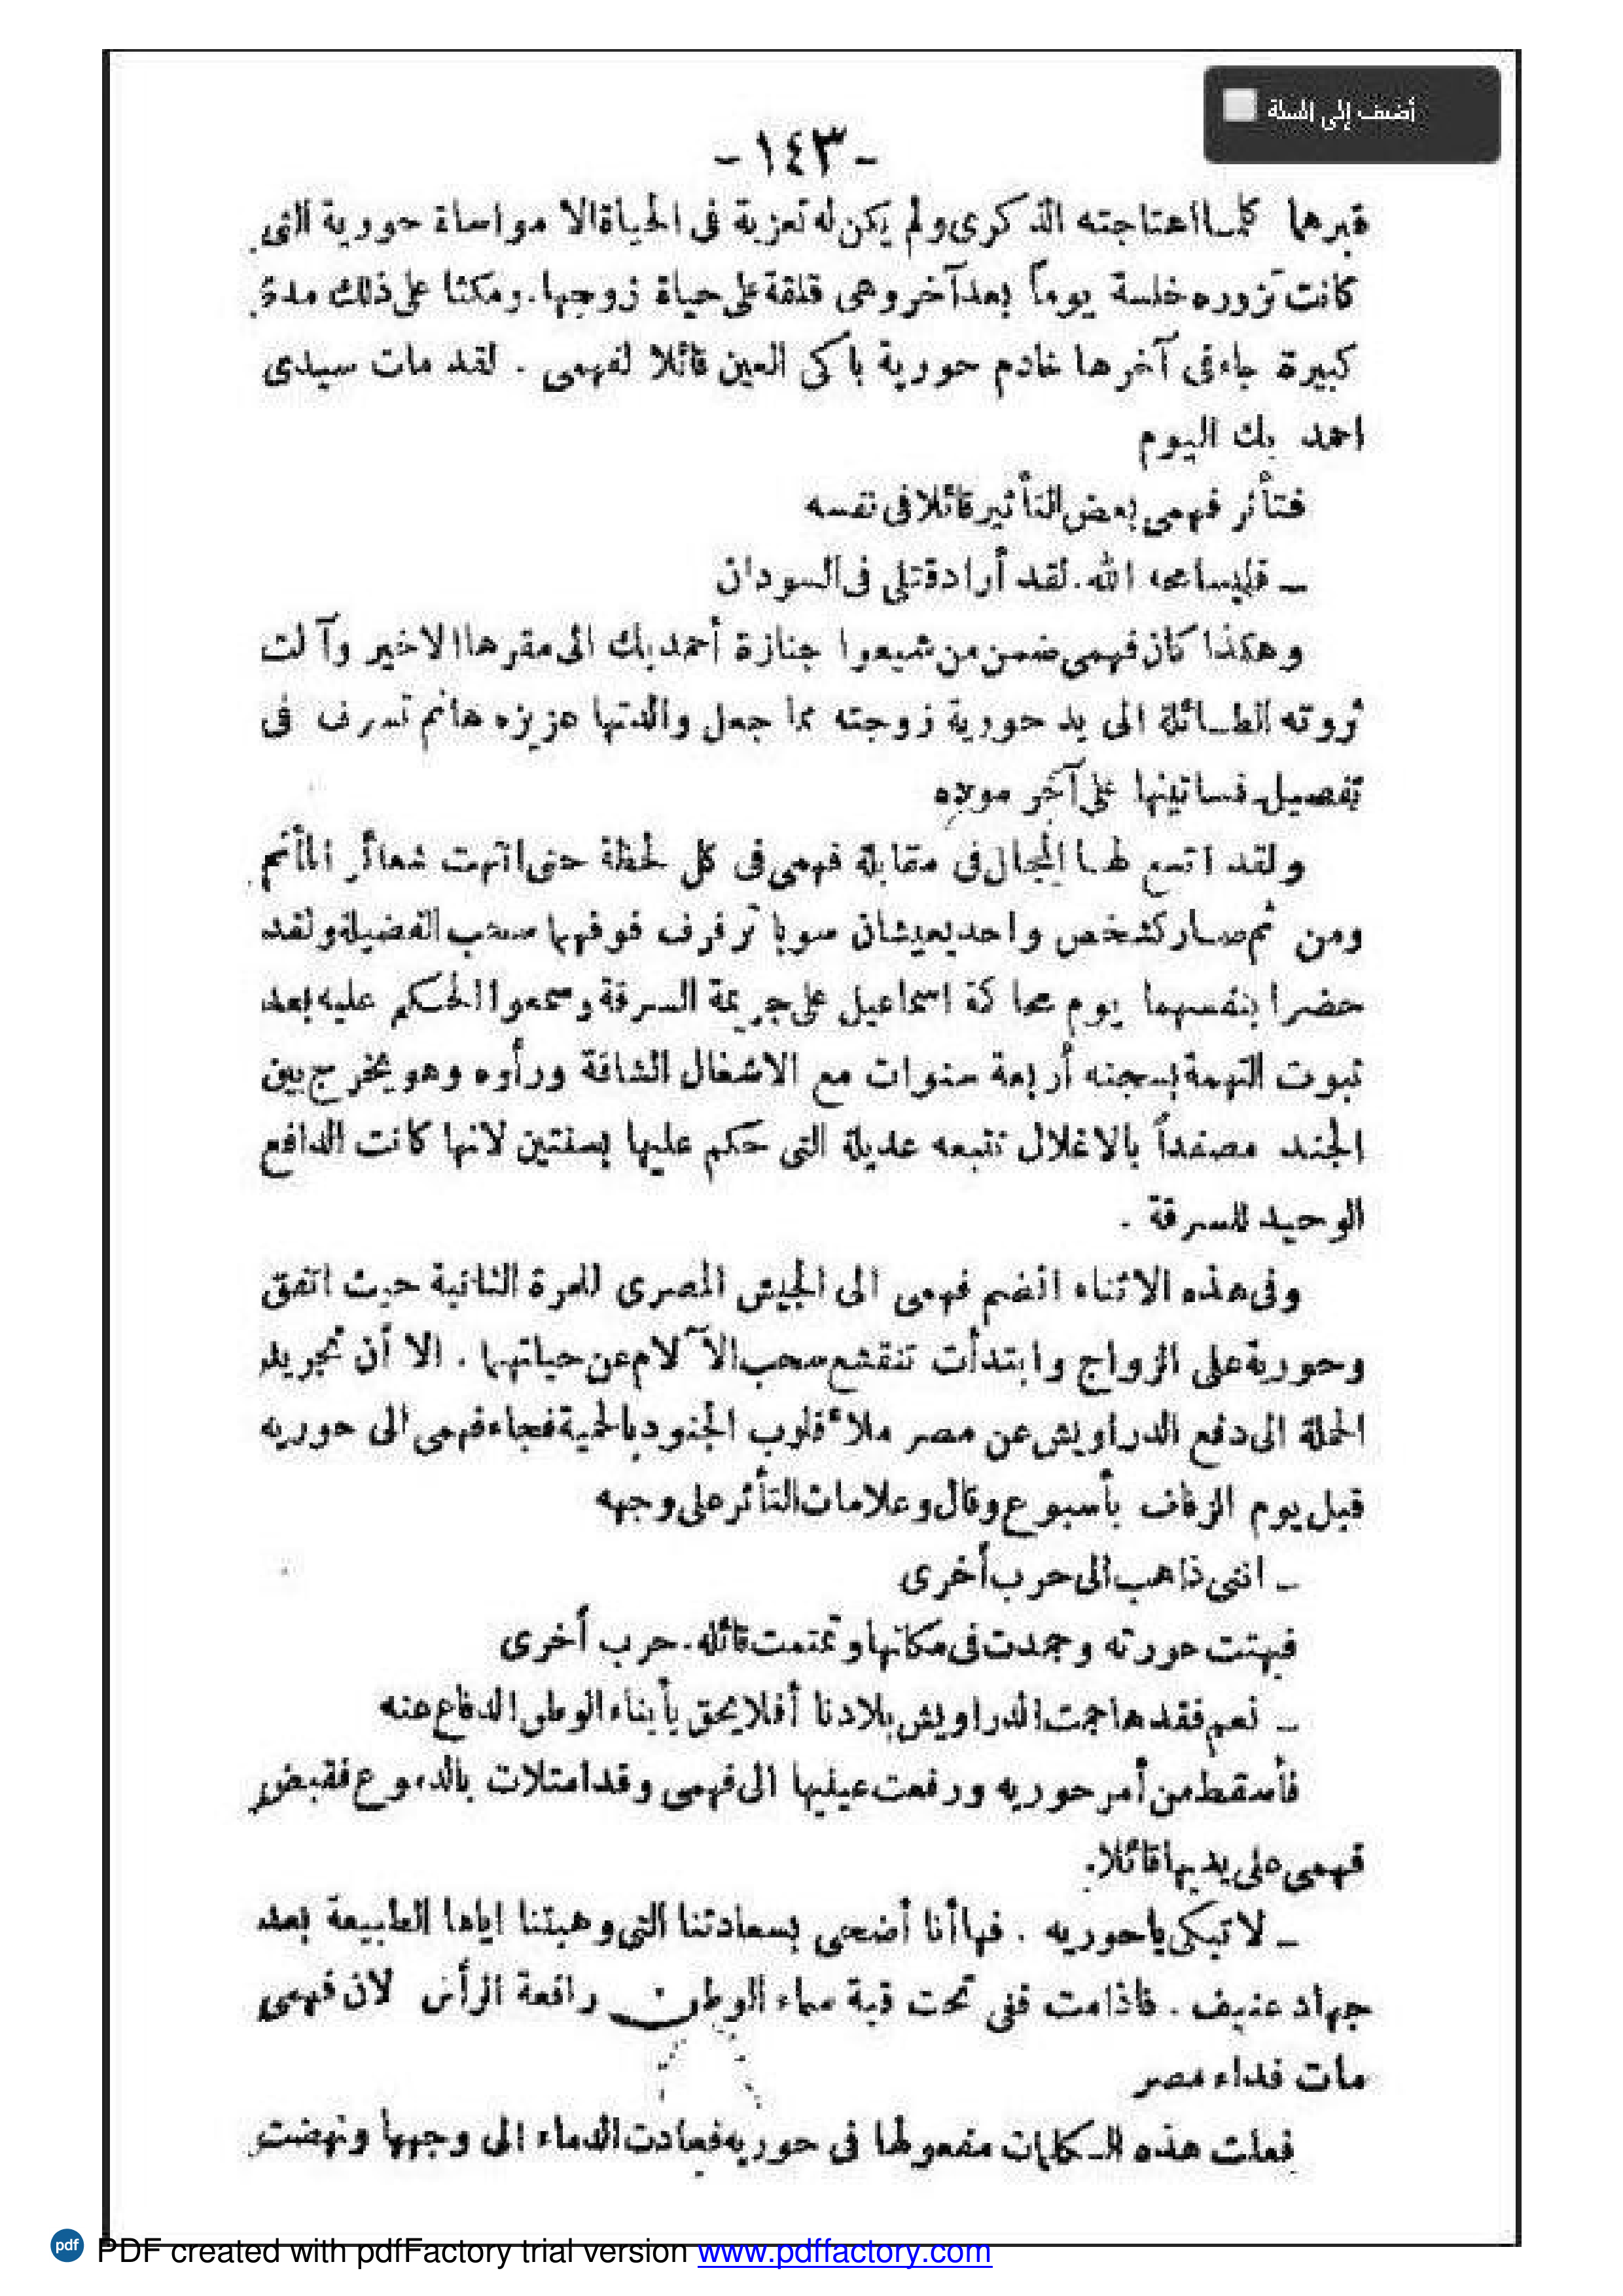 أضف إلى السلة
- ١٤٣ -
قبرها كلما اهتاجته الذكرى ولم يكن له تعزية فى الحياة الا مواساة حورية التى
كانت تزوره خلسة يوماً بعد آخر وهى قلقة على حياة زوجها. ومكثا على ذلك مدة
كبيرة جاء فى آخرها خادم حورية باكى العين قائلا لفهمى . لقد مات سيدى
احمد بك اليوم
فتأثر فهمى بعض التأثير قائلا فى نفسه
ـ فليسامحه الله. لقد أراد قتلى فى السودان
وهكذا كان فهمى ضمن من شيعوا جنازة أحمد بك الى مقرها الاخير وآلت
ثروته الطائلة الى يد حورية زوجته مما جعل والدتها عزيزه هانم تسرف فى
تفصيل فساتينها على آخر موده
ولقد اتسع لهما المجال فى مقابلة فهمى فى كل لحظة حتى انتهت شعائر المأتم
ومن ثم صار كشخص واحد يعيشان سويا ترفرف فوقهما سحب الفضيلة ولقد
حضرا بنفسهما يوم محاكمة اسماعيل على جريمة السرقة وسمعوا الحكم عليه بعد
ثبوت التهمة بسجنه أربعة سنوات مع الاشغال الشاقة ورأوه وهو يخرج بين
الجند مصفداً بالاغلال تتبعه عديلة التى حكم عليها بسنتين لانها كانت الدافع
الوحيد للسرقة .
وفى هذه الاثناء انضم فهمى الى الجيش المصرى للمرة الثانية حيث اتفق
وحورية على الزواج وابتدأت تنقشع سحب الآلام عن حياتهما . الا أن تجريد
الحملة الى دفع الدراويش عن مصر ملأ قلوب الجنود بالحمية فجاء فهمى الى حوريه
قبل يوم الزفاف بأسبوع وقال وعلامات التأثر على وجهه
ـ اننى ذاهب الى حرب أخرى
فبهتت حورته وجمدت فى مكانها وتمتمت قائله. حرب أخرى
ـ نعم فقد هاجمت الدراويش بلادنا أفلا يحق بأبناء الوطن الدفاع عنه
فأسقط من أمر حوريه ورفعت عينيها الى فهمى وقد امتلات بالدموع فقبض
فهمى على يديها قائلا.
ـ لا تبكى يا حوريه . فها أنا أضحى بسعادتنا التى وهبتنا اياها الطبيعة بعد
جهاد عنيف . فاذا مت ففى تحت قبة سماء الوطن رافعة الرأس لان فهمى
مات فداء مصر
فعلت هذه الكلمات مفعولها فى حوريه فعادت الدماء الى وجهها ونهضت
PDF created with pdfFactory trial version www.pdffactory.com